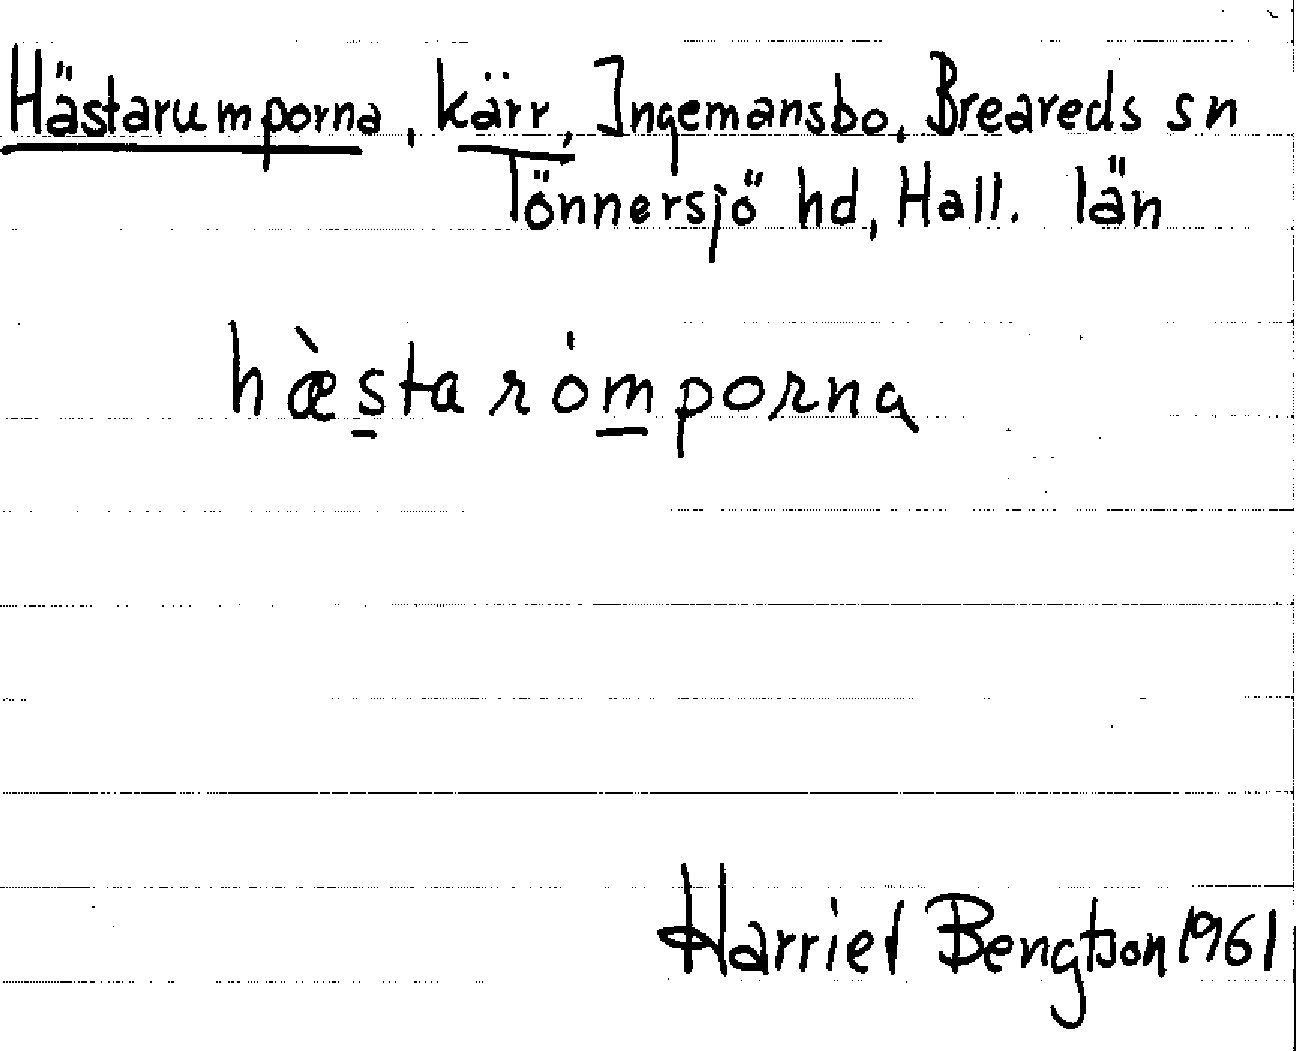 Hästarumporna, kärr, Ingemansbo, Breareds sn
Tönnersjö hd, Hall. län
hæ̀starómporna
Harriet Bengtson 1961